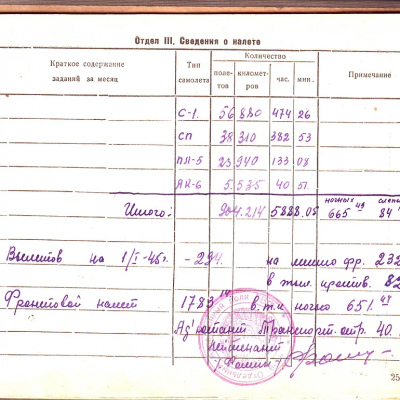 Отдел III. Сведения о налете
Краткое содержание заданий за месяц
Тип самолета
Количество
поле-тов
километ-ров
час.
мин.
Примечание
С-1. 56 880 474 26
СП 38 310 382 53
ПЛ-5 23 940 133 08
ЯК-6 5.535 40 51
Итого: 904.214 5888.05 ночных 665 43 84
Вылетов на 1/I-45г. - 294. на линию фр. 232
в т.ч. против. 82
Фронтовой налет 1783 14 в.т.ч ночью 651.47
Ад'ютант Транспорт. отр. 40.
лейтенант